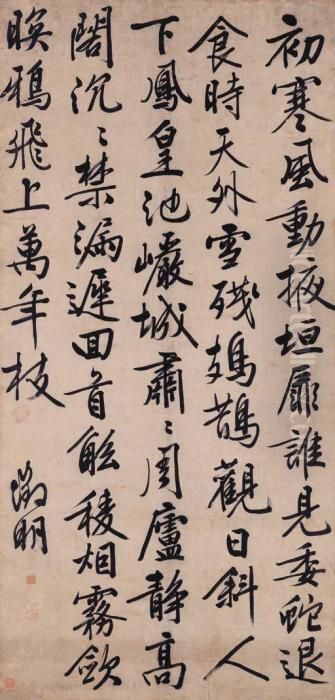 初寒風動掖垣扉誰見委蛇退
食時天外雪殘鳷鵲觀日斜人
下鳳皇池巖城肅〻周廬静高
閣沉〻禁漏遲回首觚稜烟霧歛
晚鴉飛上萬年枝
徵明